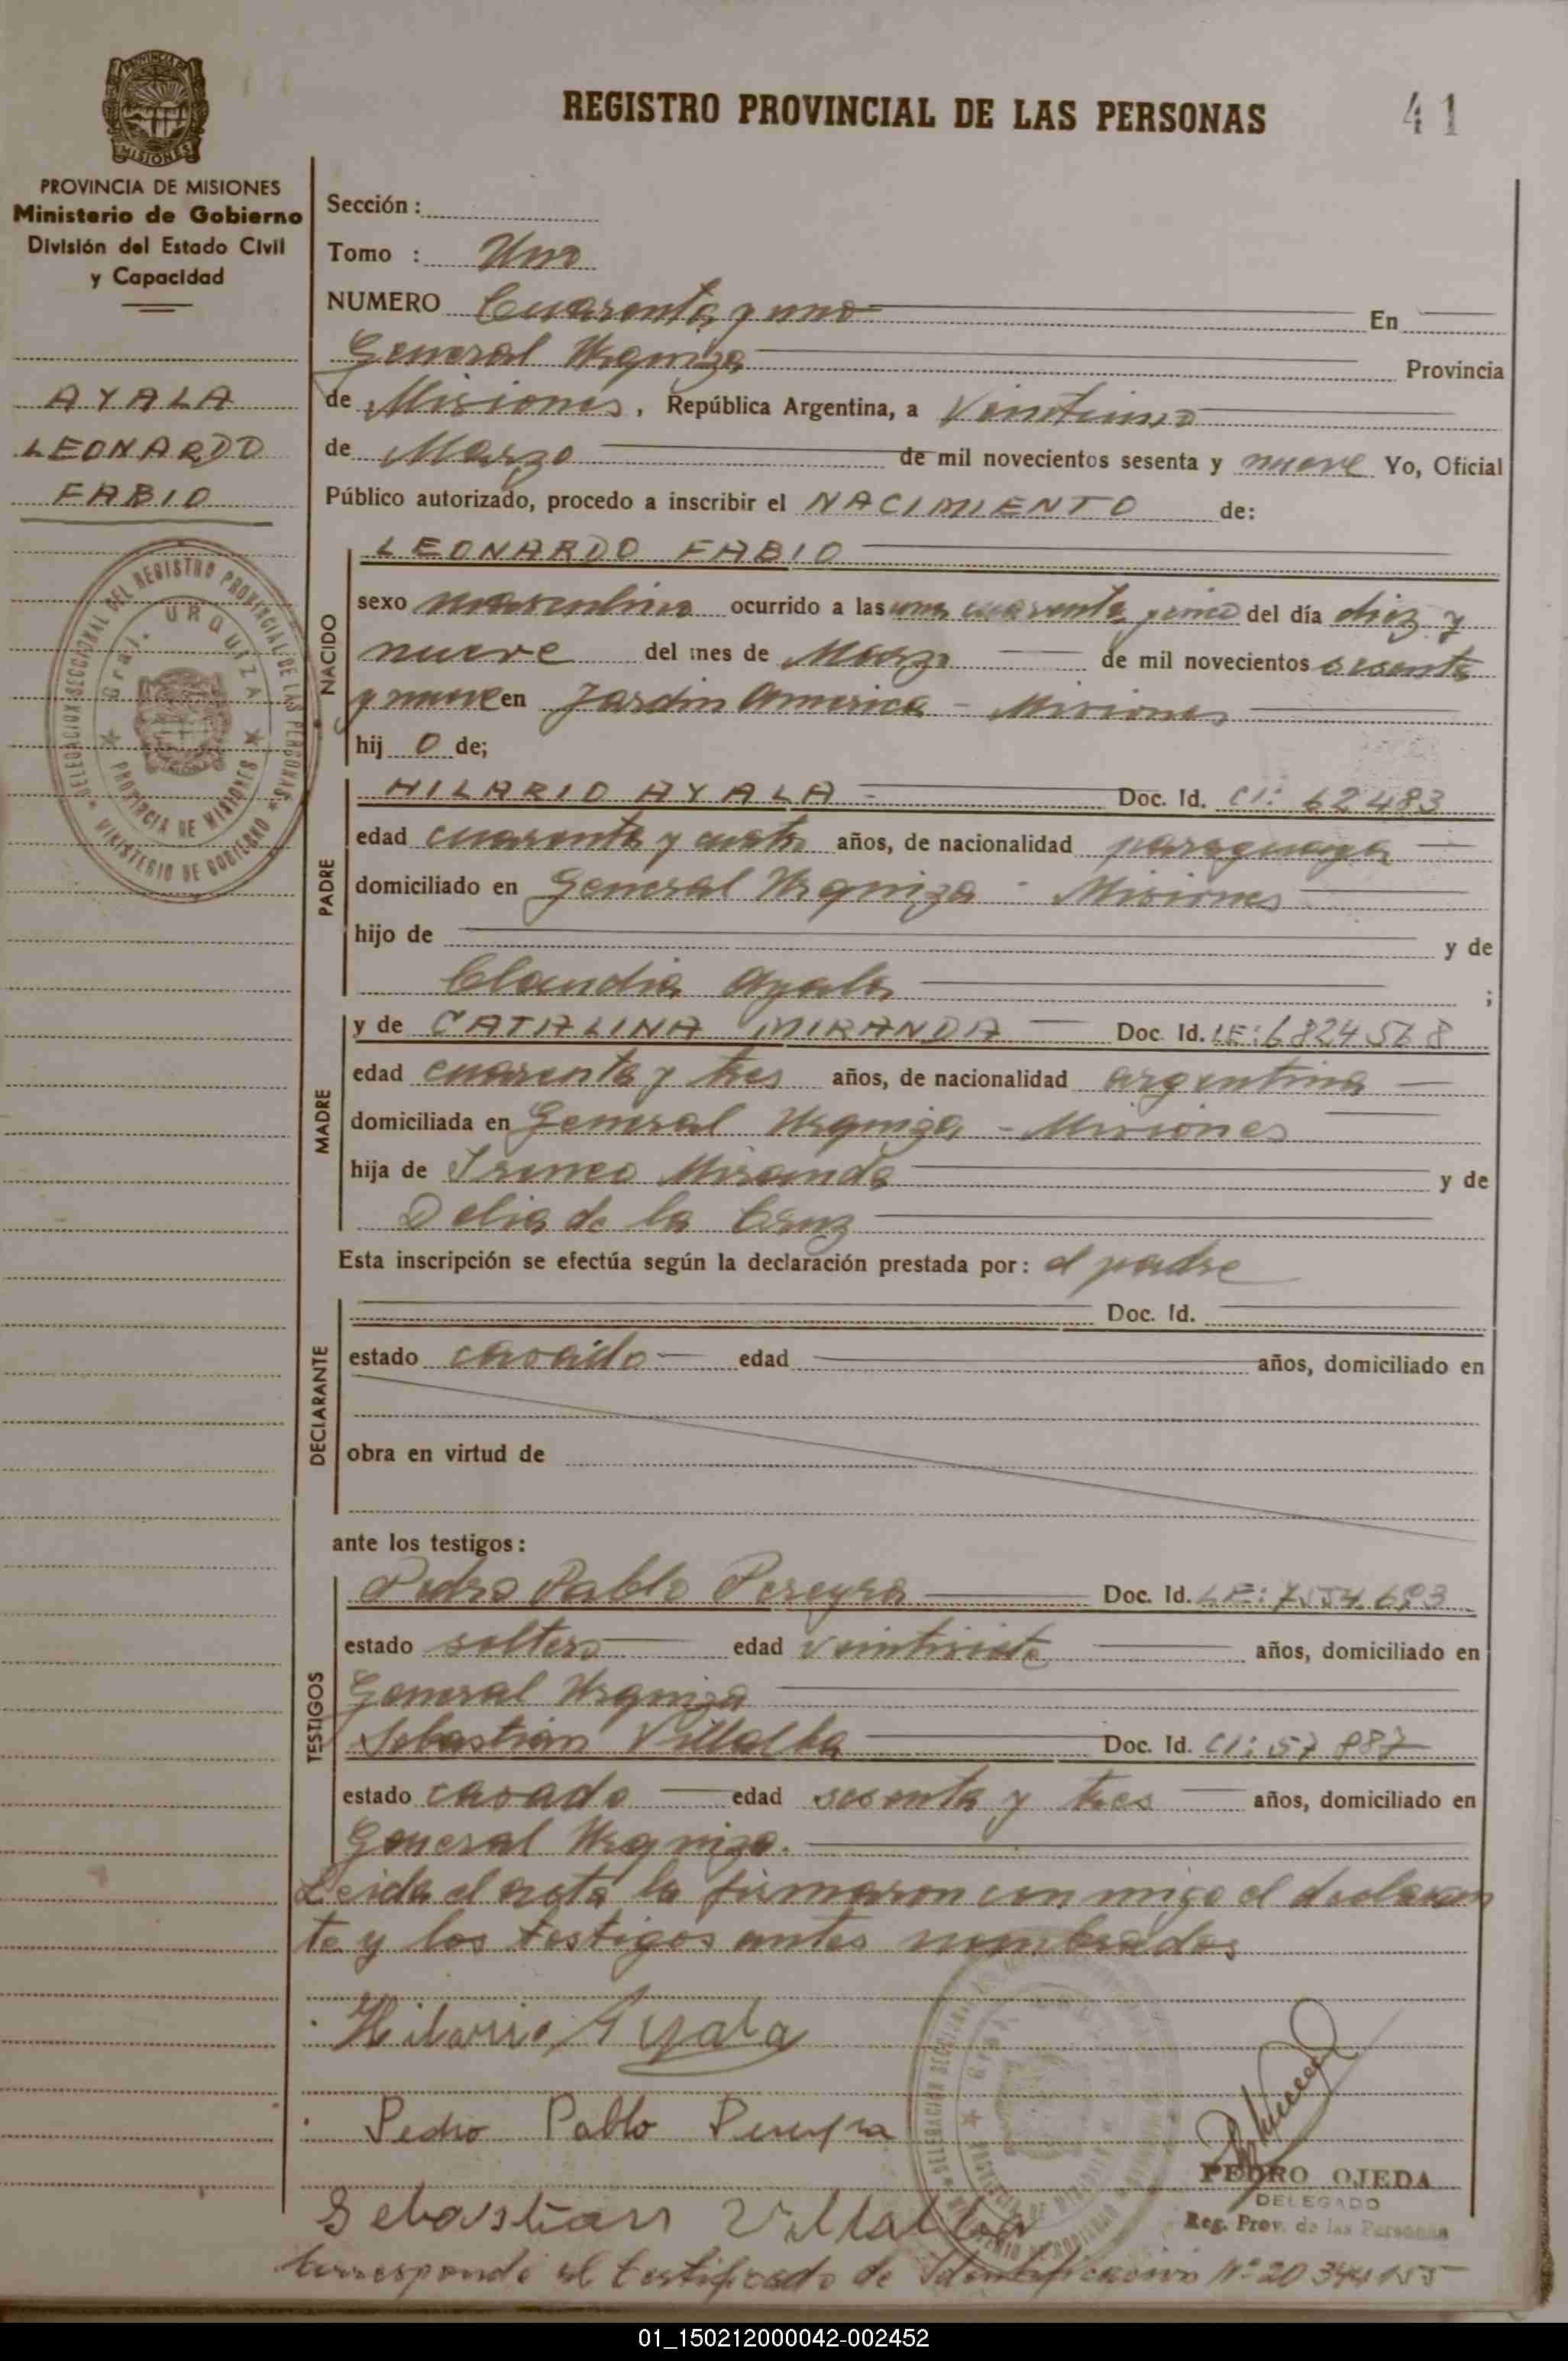 REGISTRO PROVINCIAL DE LAS PERSONAS
41
MISIONES
PROVINCIA DE MISIONES
Ministerio de Gobierno
División del Estado Civil
y Capacidad
AYALA
LEONARDO
FABIO
Sección :
Tomo : Uno
NUMERO Cuarenta y uno En
General Urquiza Provincia
de Misiones, República Argentina, a Veintiuno
de Marzo de mil novecientos sesenta y nueve Yo, Oficial
Público autorizado, procedo a inscribir el NACIMIENTO de:
LEONARDO FABIO
NACIDO
sexo masculino ocurrido a las una cuarenta y cinco del día diez y
nueve del mes de Marzo de mil novecientos sesenta
y nueve en Jardin America - Misiones
hij o de;
DELEGACION SECCIONAL DEL REGISTRO PROVINCIAL DE LAS PERSONAS
Gral. URQUIZA
PROVINCIA DE MISIONES
MINISTERIO DE GOBIERNO
PADRE
HILARIO AYALA - Doc. Id. CI: 62483
edad cuarenta y cuatro años, de nacionalidad paraguaya
domiciliado en General Urquiza - Misiones
hijo de y de
Claudia Ayala ;
MADRE
y de CATALINA MIRANDA Doc. Id. LE: 6824568
edad cuarenta y tres años, de nacionalidad argentina
domiciliada en General Urquiza - Misiones
hija de Irineo Miranda y de
Delia de la Cruz
Esta inscripción se efectúa según la declaración prestada por: el padre
DECLARANTE
Doc. Id.
estado casado edad años, domiciliado en
obra en virtud de
ante los testigos:
TESTIGOS
Pedro Pablo Pereyra Doc. Id. LE:
estado soltero edad veintisiete años, domiciliado en
General Urquiza
Sebastian Villalba Doc. Id. CI: 57 887
estado casado edad sesenta y tres años, domiciliado en
General Urquiza.
Leida el acta la firmaron con migo el declaran
te y los testigos antes nombrados
Hilario Ayala
Pedro Pablo Pereyra
PEDRO OJEDA
DELEGADO
Reg. Prov. de las Personas
Sebastian Villalba
Corresponde al Certificado de Identificacion Nº 20 344 155
01_150212000042-002452